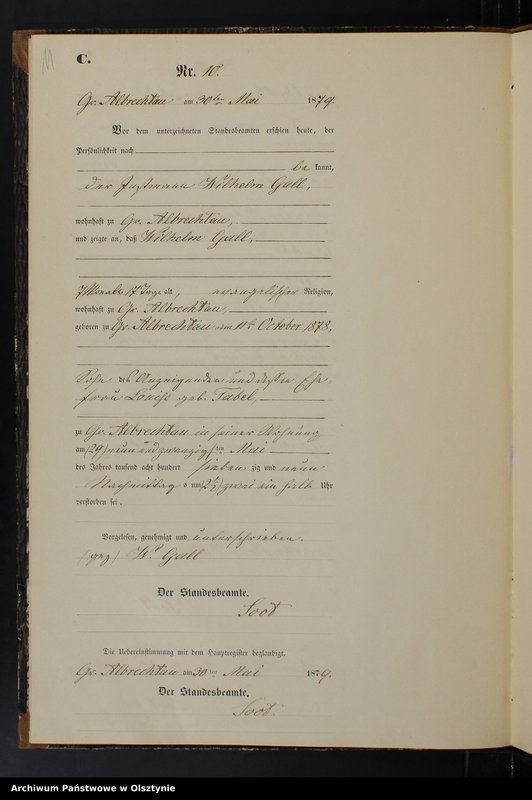 11
C.
Nr. 10.
Gr. Albrechtau am 30ten Mai 1879.
Vor dem unterzeichneten Standesbeamten erschien heute, der
Persönlichkeit nach
be kannt,
der Instmann Wilhelm Gall,
wohnhaft zu Gr. Albrechtau,
und zeigte an, daß Wilhelm Gall,
7 Monate 17 Tage alt, evangelischer Religion,
wohnhaft zu Gr. Albrechtau,
geboren zu Gr. Albrechtau am 11ten October 1878,
Sohn des Anzeigenden und dessen Ehe-
frau Louise geb. Tabel,
zu Gr. Albrechtau in seiner Wohnung
am (29) neun und zwanzigsten Mai
des Jahres tausend acht hundert sieben zig und neun
Nachmittags um (2½) zwei ein halb Uhr
verstorben sei.
Vorgelesen, genehmigt und unterschrieben.
(gez) W. Gall
Der Standesbeamte.
Die Uebereinstimmung mit dem Hauptregister beglaubigt.
Gr. Albrechtau am 30ten Mai 1879.
Der Standesbeamte.
Archiwum Państwowe w Olsztynie